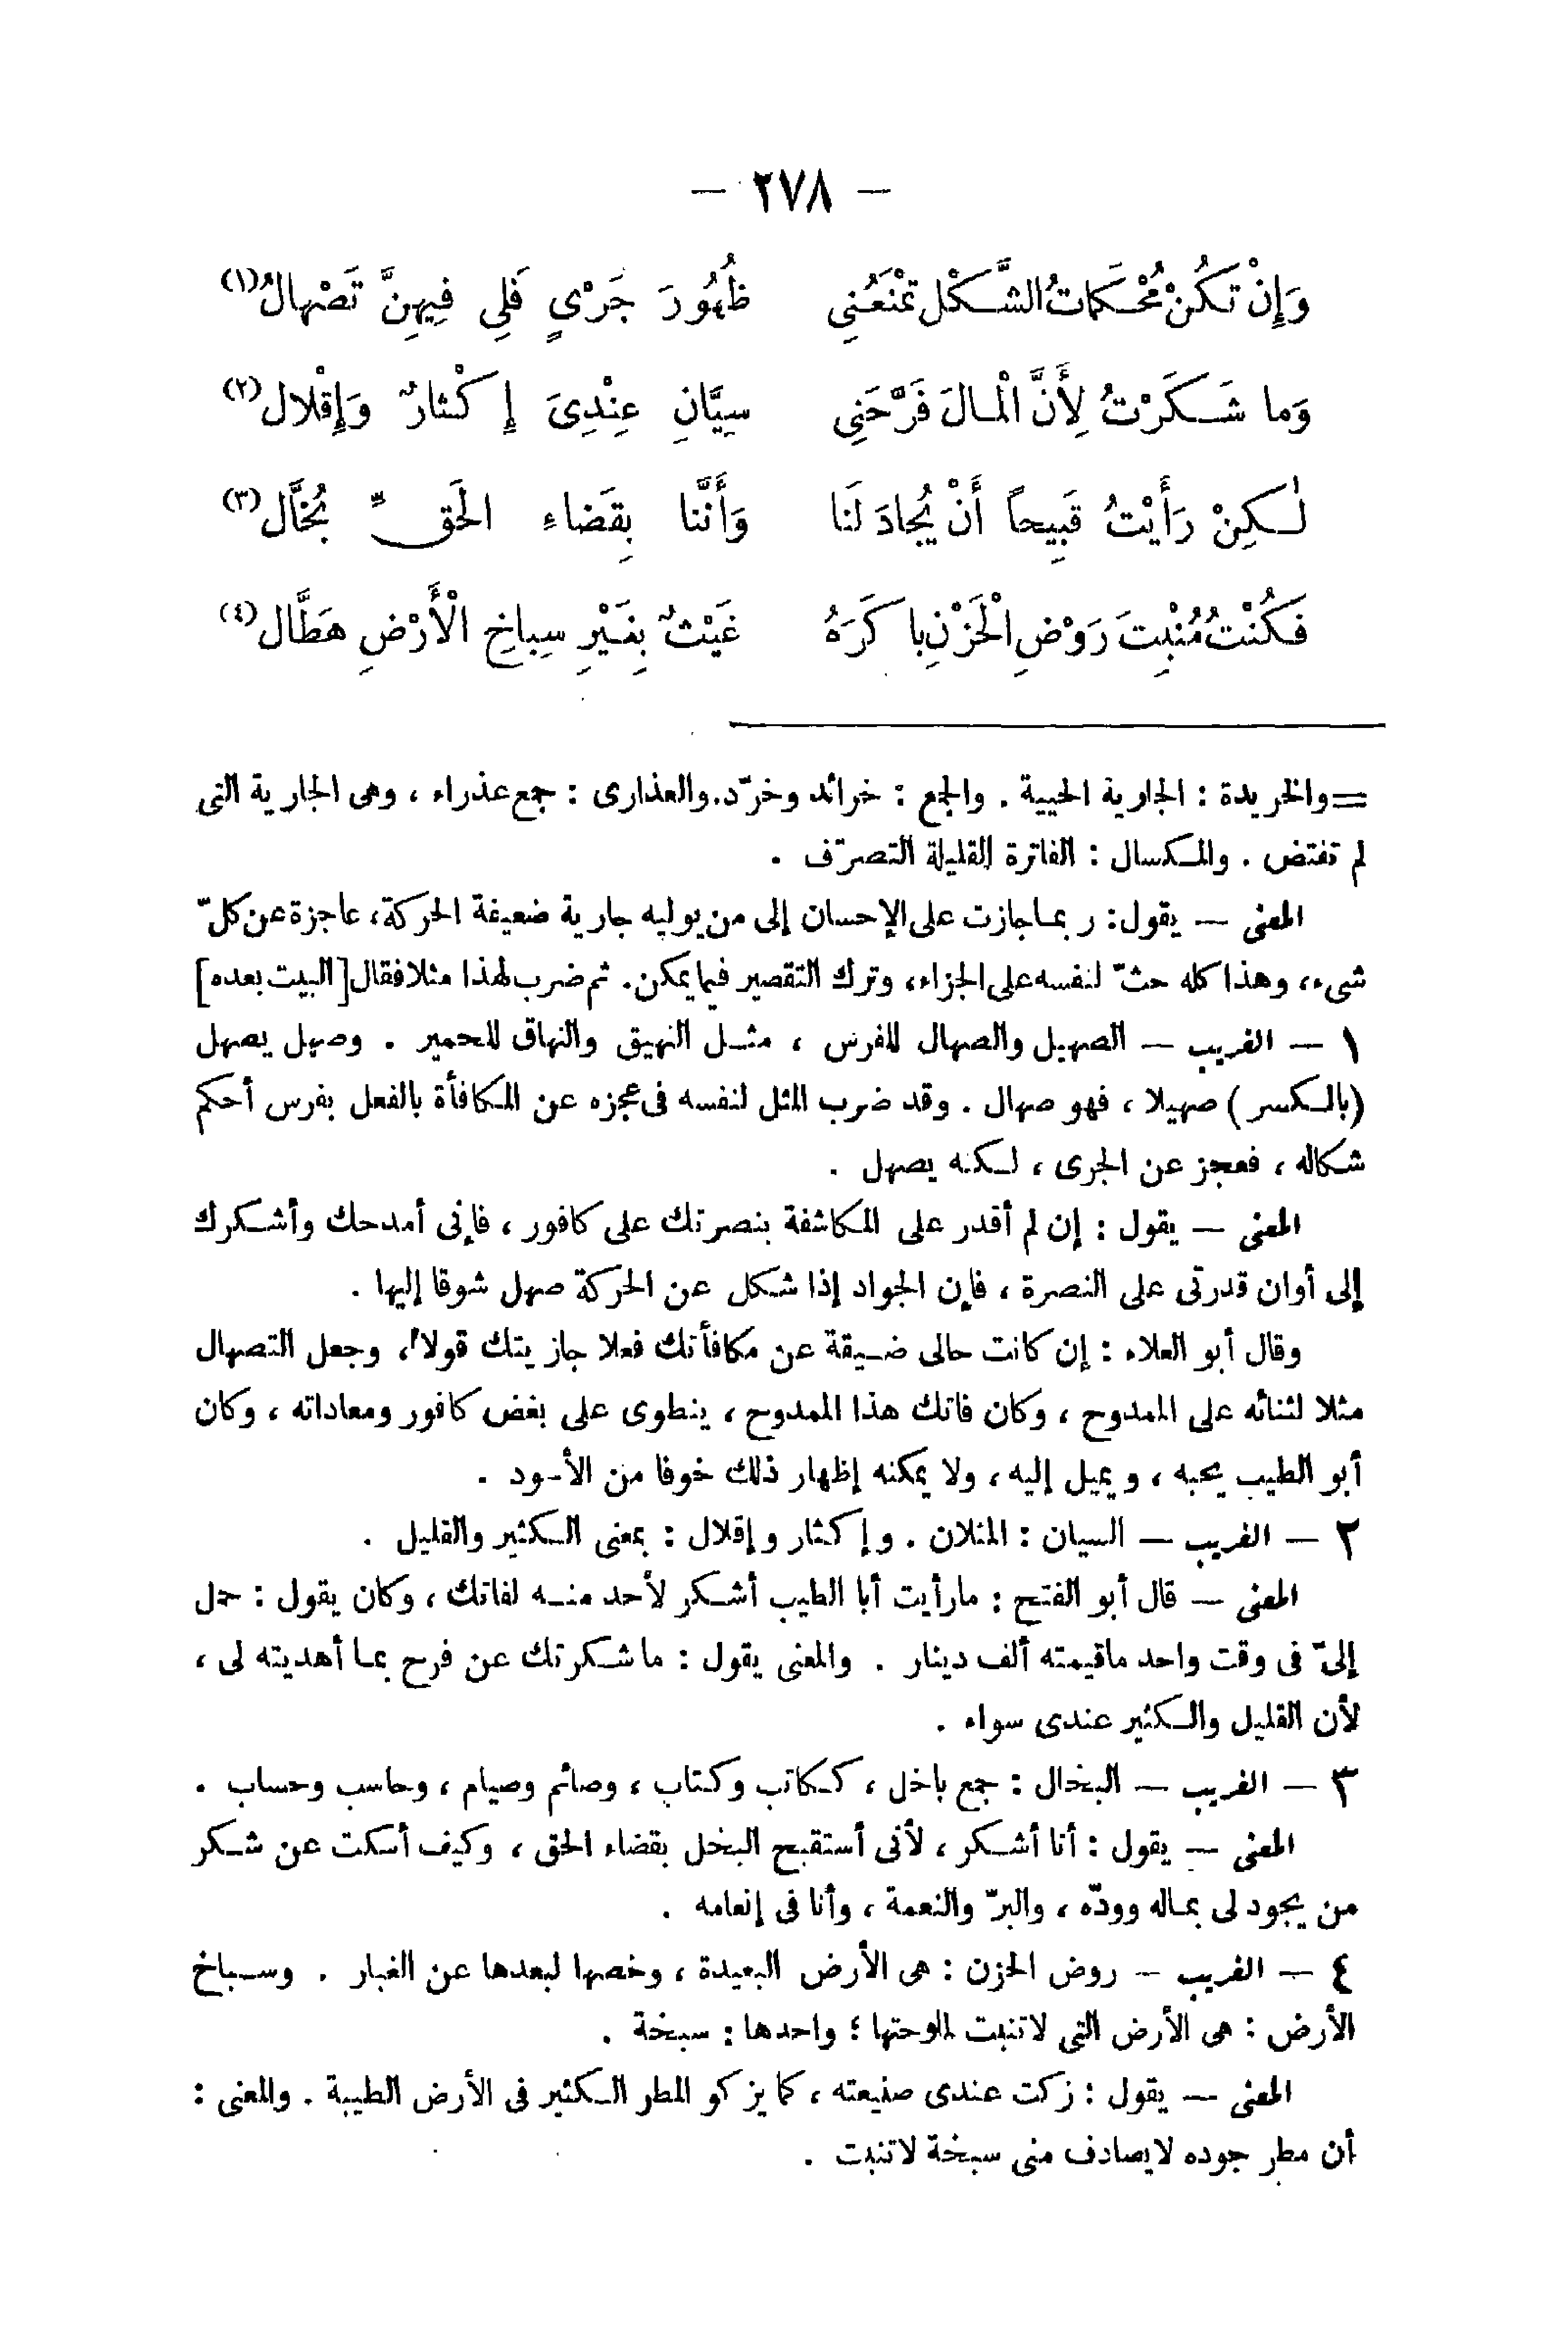 — ٢٧٨ —
وَإِنْ تَكُنْ مُحْكَمَاتُ الشَّكْلِ تَمْنَعُنِي ظُهُورَ جَرْيٍ فَلِي فِيهِنَّ تَصْهَالُ (١)
وَما شَكَرْتُ لِأَنَّ الْمالَ فَرَّحَنِي سِيَّانِ عِنْدِىَ إِكْثارٌ وَإِقْلال (٢)
لٰكِنْ رَأَيْتُ قَبِيحاً أَنْ يُجادَ لَنَا وَأَنَّنا بِقَضَاءِ الحَقِّ بُخَّال (٣)
فَكُنْتُ مُنْبِتَ رَوْضِ الْحَزْنِ باكَرَهُ غَيْثٌ بِغَيْرِ سِباخِ الْأَرْضِ هَطَّال (٤)
=والخريدة : الجارية الحيية . والجمع : خرائد وخرّد. والعذارى : جمع عذراء ، وهى الجارية التى
لم تفتض . والمكسال : الفاترة القليلة التصرّف .
المعنى — يقول: ربما جازت على الإحسان إلى من يوليه جارية ضعيفة الحركة، عاجزة عن كلّ
شىء، وهذا كله حثّ لنفسه على الجزاء، وترك التقصير فيما يمكن. ثم ضرب لهذا مثلا فقال [البيت بعده]
١ — الغريب — الصهيل والصهال للفرس ، مثل النهيق والنهاق للحمير . وصهل يصهل
(بالكسر) صهيلا ، فهو صهال . وقد ضرب المثل لنفسه فى عجزه عن المكافأة بالفعل بفرس أحكم
شكاله ، فعجز عن الجرى ، لكنه يصهل .
المعنى — يقول : إن لم أقدر على المكاشفة بنصرتك على كافور ، فإنى أمدحك وأشكرك
إلى أوان قدرتى على النصرة ، فإن الجواد إذا شكل عن الحركة صهل شوقا إليها .
وقال أبو العلاء : إن كانت حالى ضيقة عن مكافأتك فعلا جازيتك قولا، وجعل التصهال
مثلا لثنائه على الممدوح ، وكان فاتك هذا الممدوح ، ينطوى على بغض كافور ومعاداته ، وكان
أبو الطيب يحبه ، ويميل إليه ، ولا يمكنه إظهار ذلك خوفا من الأسود .
٢ — الغريب — السيان : المثلان . وإكثار وإقلال : بمعنى الكثير والقليل .
المعنى — قال أبو الفتح : مارأيت أبا الطيب أشكر لأحد منه لفاتك ، وكان يقول : حمل
إلىّ فى وقت واحد ماقيمته ألف دينار . والمعنى يقول : ماشكرتك عن فرح بما أهديته لى ،
لأن القليل والكثير عندى سواء .
٣ — الغريب — البخال : جمع باخل ، ككاتب وكتاب ، وصائم وصيام ، وحاسب وحساب .
المعنى — يقول : أنا أشكر ، لأنى أستقبح البخل بقضاء الحق ، وكيف أسكت عن شكر
من يجود لى بماله وودّه ، والبرّ والنعمة ، وأنا فى إنعامه .
٤ — الغريب — روض الحزن : هى الأرض البعيدة ، وخصها لبعدها عن الغبار . وسباخ
الأرض : هى الأرض التى لاتنبت لملوحتها ؛ واحدها : سبخة .
المعنى — يقول : زكت عندى صنيعته ، كما يزكو المطر الكثير فى الأرض الطيبة . والمعنى :
أن مطر جوده لايصادف منى سبخة لاتنبت .